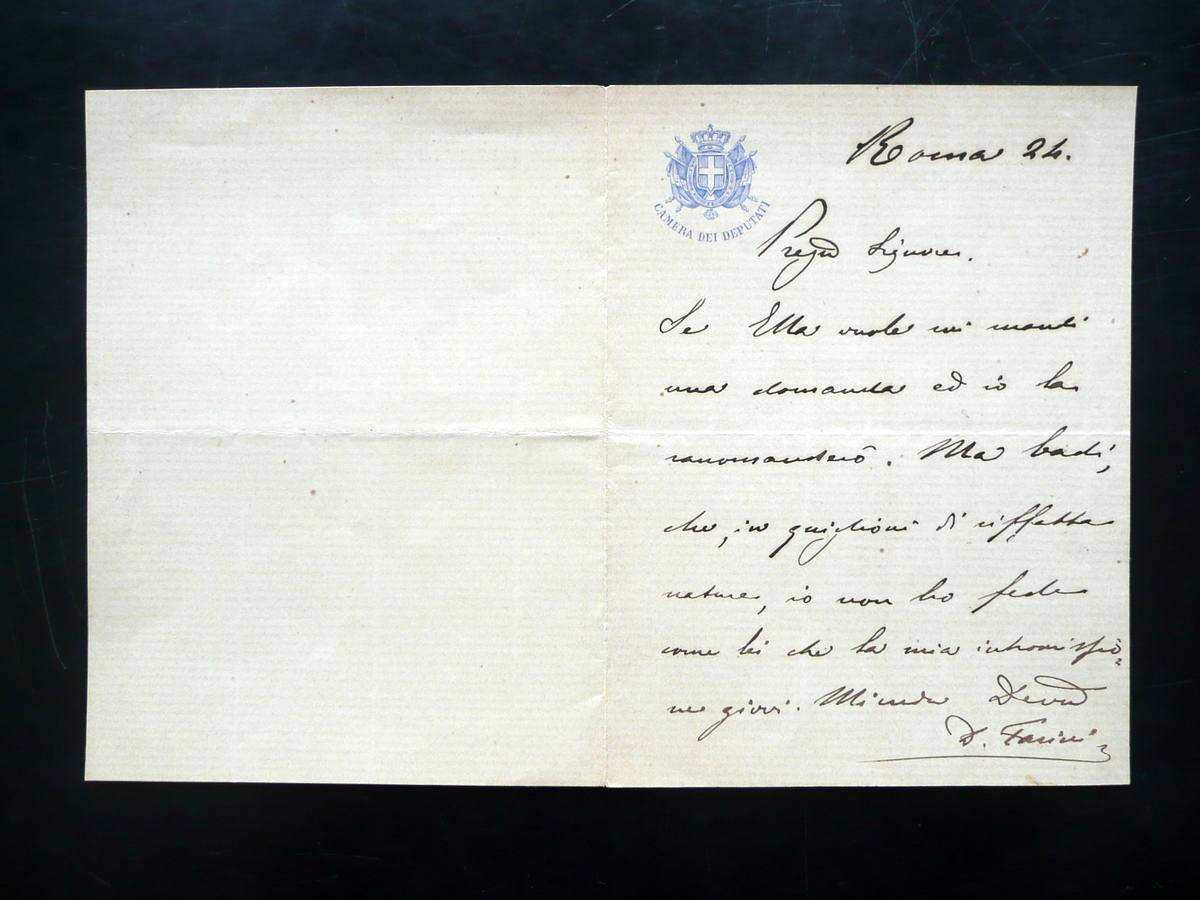 CAMERA DEI DEPUTATI
Roma 24.
Preg.mo Signore.
Se Ella vuole mi mandi
una domanda ed io la
raccomanderò. Ma badi,
che, in quistioni di siffatta
natura, io non ho fede
come lei che la mia intromissio-
ne giovi. Mi creda Dev.mo
D. Farini